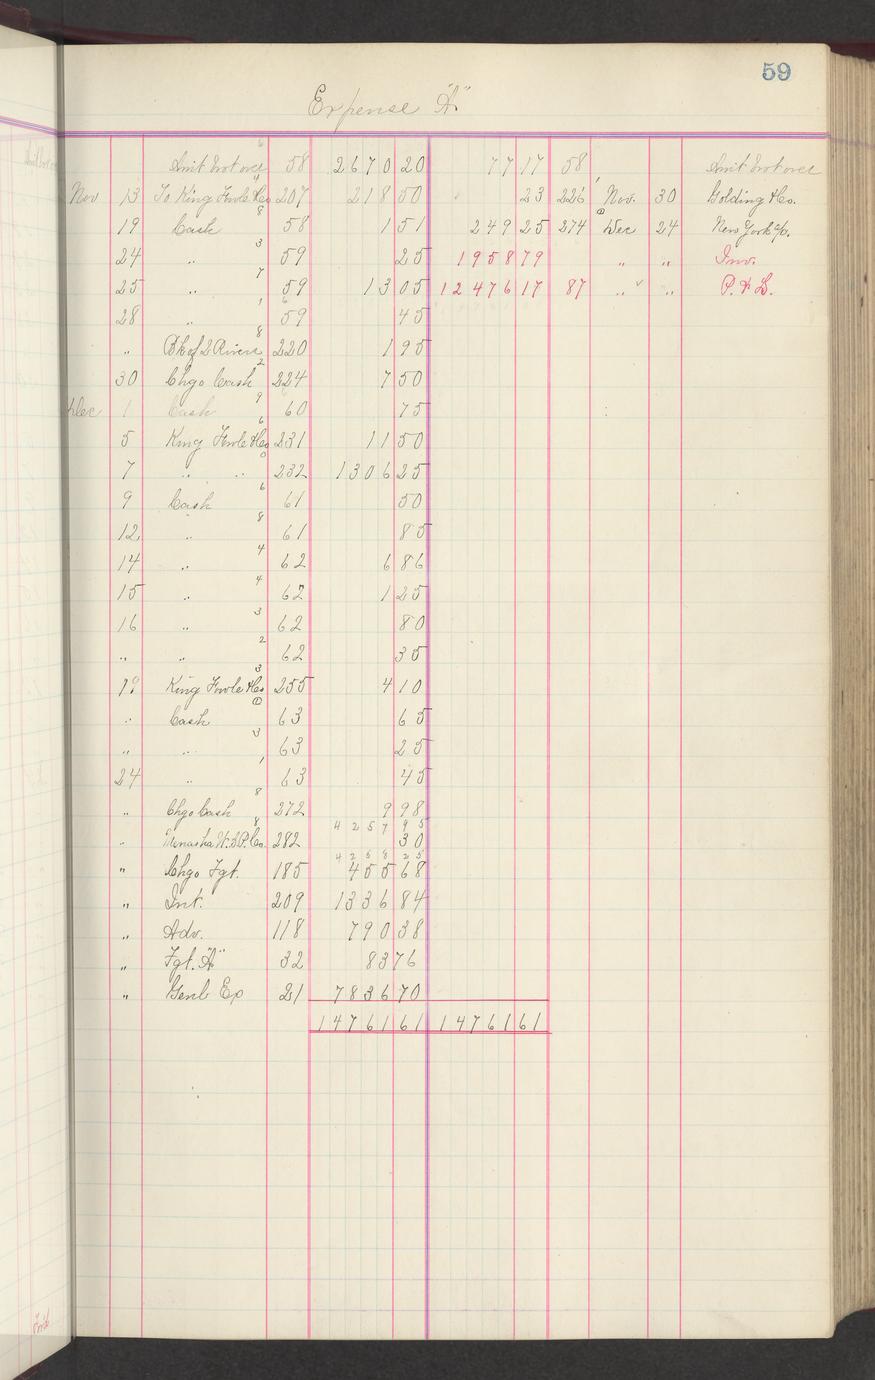 59
Expense "A"
Amt brot over 58 2670 20 77 17 58 Amt brot over
Nov 13 To King Fowle & Co 207 218 50 23 226 Nov. 30 Golding & Co.
19 Cash 58 1 51 249 25 274 Dec 24 New York a/c.
24 " 59 25 1958 79 " " Inv.
25 " 59 13 05 12476 17 87 " " P. & L.
28 " 59 45
" Bk of 2 Rivers 220 1 95
30 Chgo Cash 224 7 50
Dec 1 Cash 60 75
5 King Fowle & Co 231 11 50
7 " " 232 1306 25
9 Cash 61 50
12 " 61 85
14 " 62 6 86
15 " 62 1 25
16 " 62 80
" " 62 35
19 King Fowle & Co 255 4 10
" Cash 63 65
" " 63 25
24 " 63 45
" Chgo Cash 272 9 98
4257 95
" Menasha W.S.P. Co. 282 30
4258 25
" Chgo Fgt. 185 455 68
" Int. 209 1336 84
" Adv. 118 790 38
" Fgt. "A" 32 83 76
" Genl Ex 21 7836 70
14761 61 14761 61